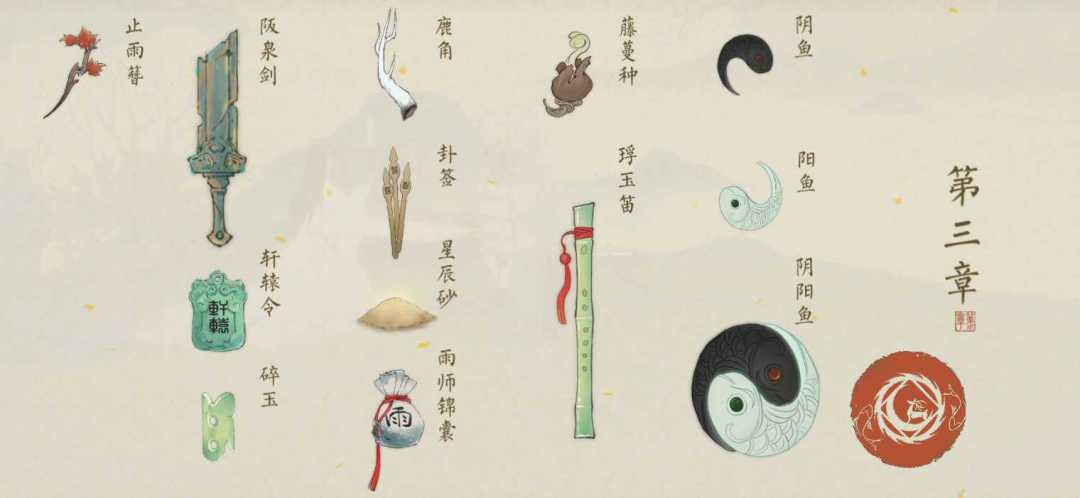 第三章
阴鱼
阳鱼
阴阳鱼
藤蔓种
琈玉笛
鹿角
卦签
星辰砂
雨师锦囊
雨
阪泉剑
轩辕令
軒轅
碎玉
止雨簪